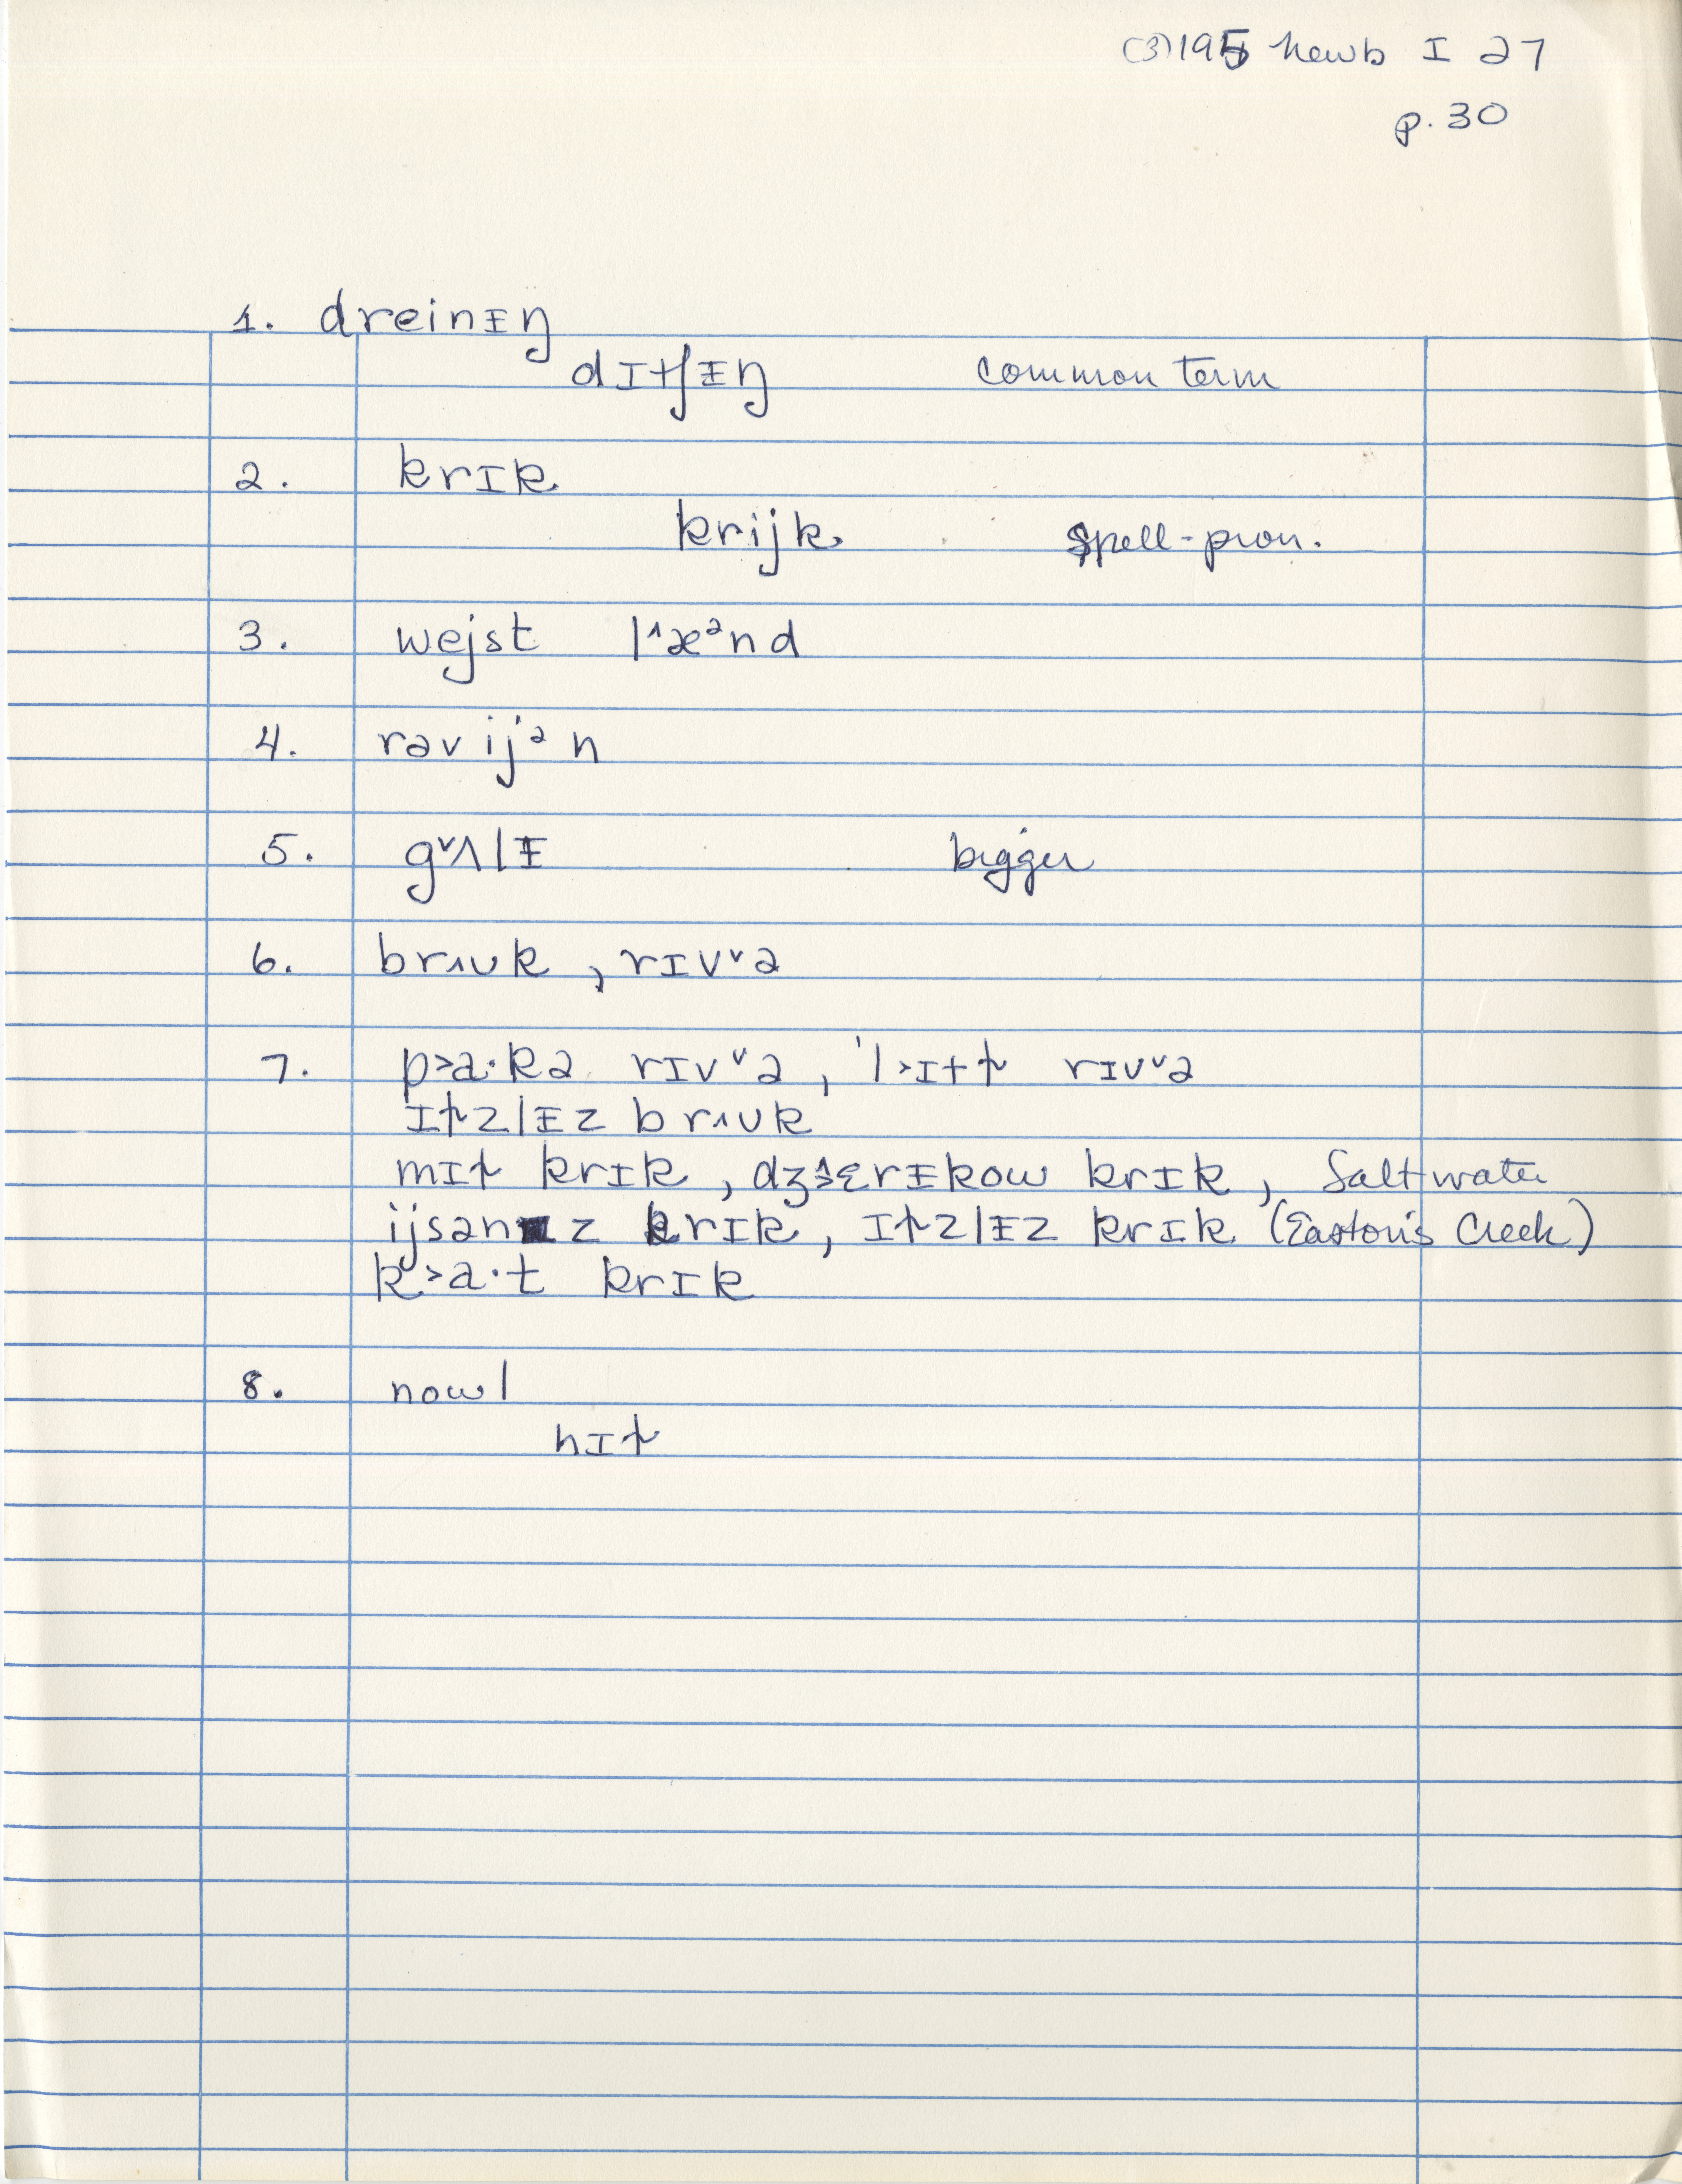 (3) 195 Newb I 27
p. 30
1. dreinɪ̵ŋ
dɪtʃɪ̵ŋ common term
2. krɪk
krijk spell-pron.
3. wejst l^æᵊnd
4. rəvijᵊn
5. g˅ʌlɪ̵ bigger
6. br^ʊk, rɪv˅ə
7. p>a·kə rɪv˅ə, 'l>ɪtɫ rɪv˅ə
ɪɫzlɪ̵z br^ʊk
mɪɫ krɪk, dʒ^ɛrɪ̵kow krɪk, Saltwater
ijsənz krɪk, ɪɫzlɪ̵z krɪk (Easton's Creek)
k>a·t krɪk
8. nowl
hɪɫ